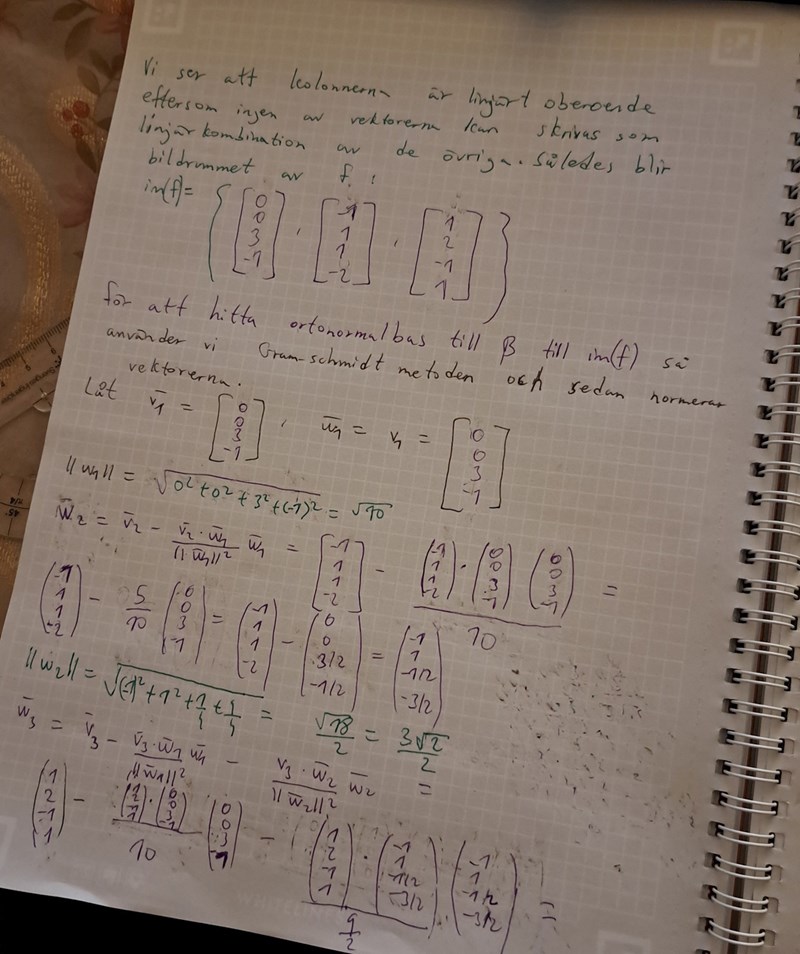 Vi ser att kolonnerna är linjärt oberoende
eftersom ingen av vektorerna kan skrivas som
linjär kombination av de övriga. Således blir
bildrummet av f.
im(f)= { [0 0 3 -1], [-1 1 1 -2], [1 2 -1 1] }
för att hitta ortonormalbas till β till im(f) så
använder vi Gram-schmidt metoden och sedan normerar
vektorerna.
Låt v̄1 = [0 0 3 -1], w̄1 = v1 = [0 0 3 -1]
||w1|| = √(0²+0²+3²+(-1)²) = √10
w̄2 = v̄2 - (v̄2·w̄1)/||w̄1||² w̄1 = [-1 1 1 -2] - (-1 1 1 -2)·(0 0 3 -1)/10 (0 0 3 -1) =
(-1 1 1 -2) - 5/10 (0 0 3 -1) = (-1 1 1 -2) - (0 0 3/2 -1/2) = (-1 1 -1/2 -3/2)
||w2|| = √((-1)²+1²+1/4+9/4) = √18/2 = 3√2/2
w̄3 = v̄3 - (v̄3·w̄1)/||w̄1||² w̄1 - (v3·w̄2)/||w̄2||² w̄2 =
(1 2 -1 1) - (1 2 -1 1)·(0 0 3 -1)/10 (0 0 3 -1) - (1 2 -1 1)·(-1 1 -1/2 -3/2)/(9/2) · (-1 1 -1/2 -3/2) =